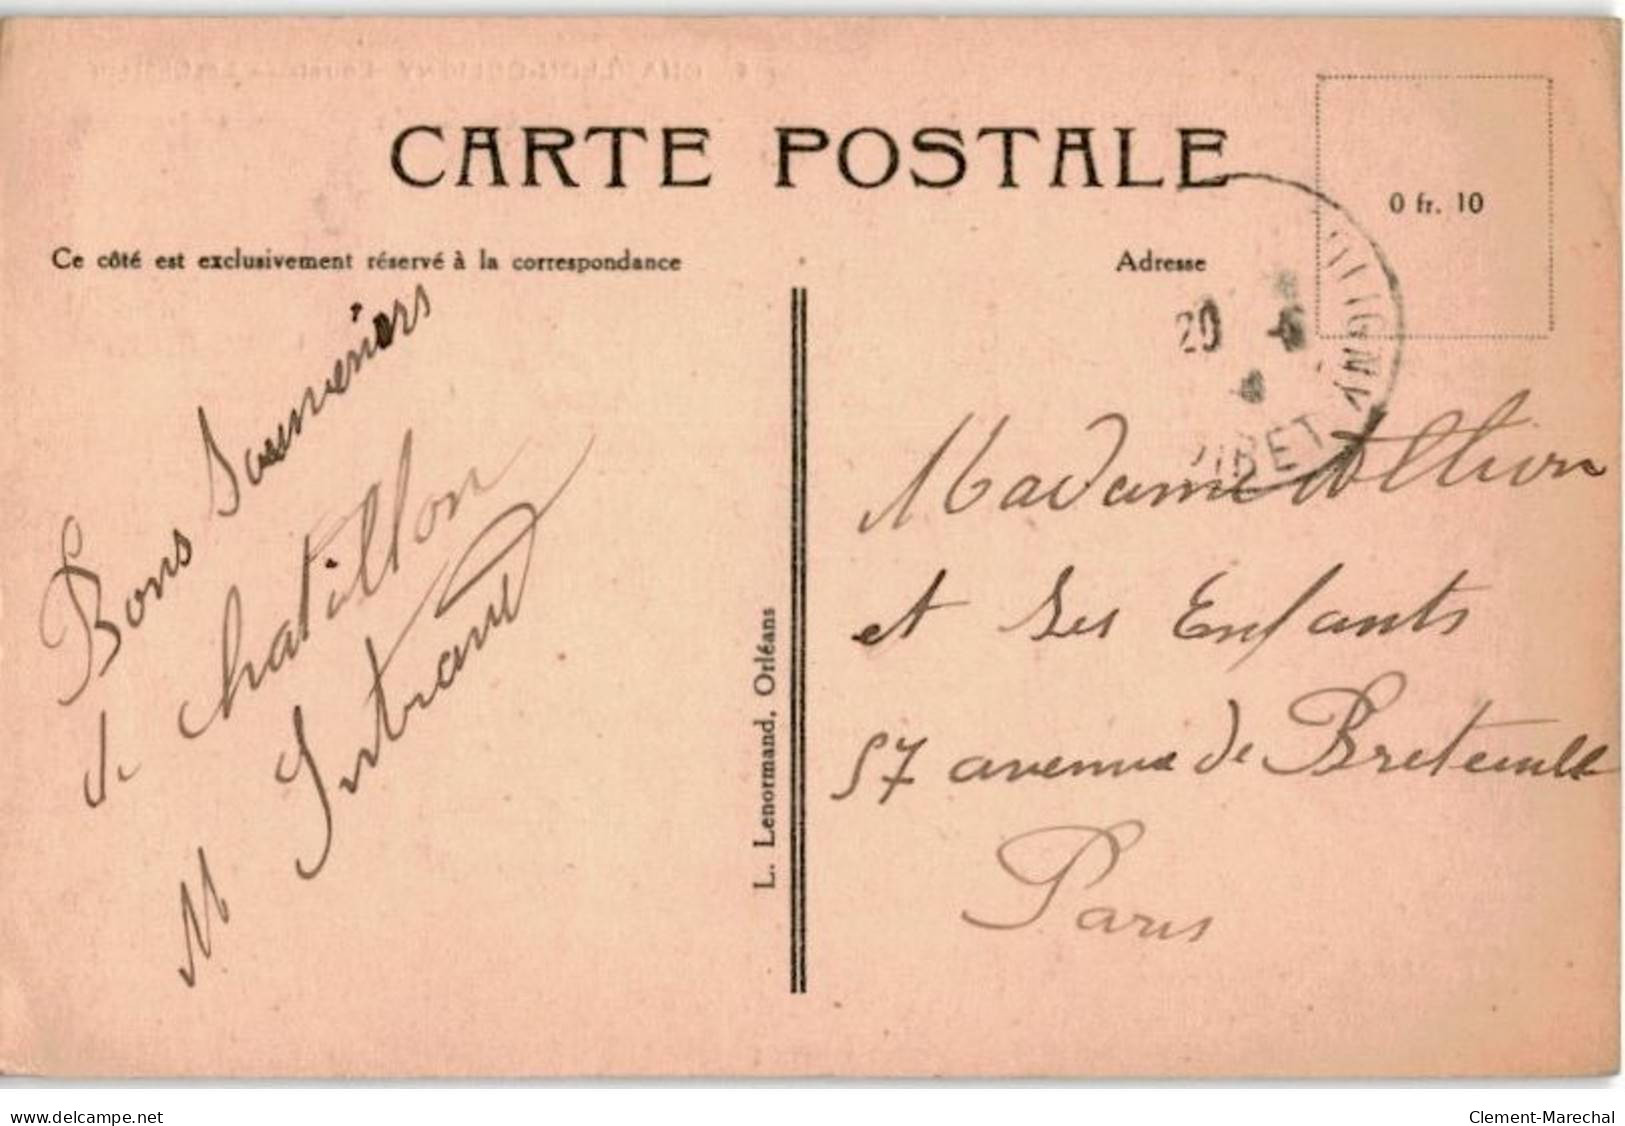 CARTE POSTALE
0 fr. 10
Ce côté est exclusivement réservé à la correspondance
Adresse
20
LOIRET
Bons Souveniers
de Chatillon
M
L. Lenormand, Orléans
Madame
et Ses Enfants
57 avenue de Breteuille
Paris
www.delcampe.net
Clement-Marechal